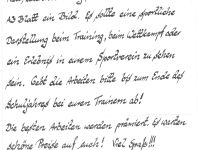 A3 Blatt ein Bild. Es sollte eine sportliche
Darstellung beim Training, beim Wettkampf oder
ein Erlebnis in einem Sportverein zu sehen
sein. Gebt die Arbeiten bitte bis zum Ende des
Schuljahres bei euren Trainern ab!
Die besten Arbeiten werden prämiert. Es warten
schöne Preise auf euch! Viel Spaß!!!